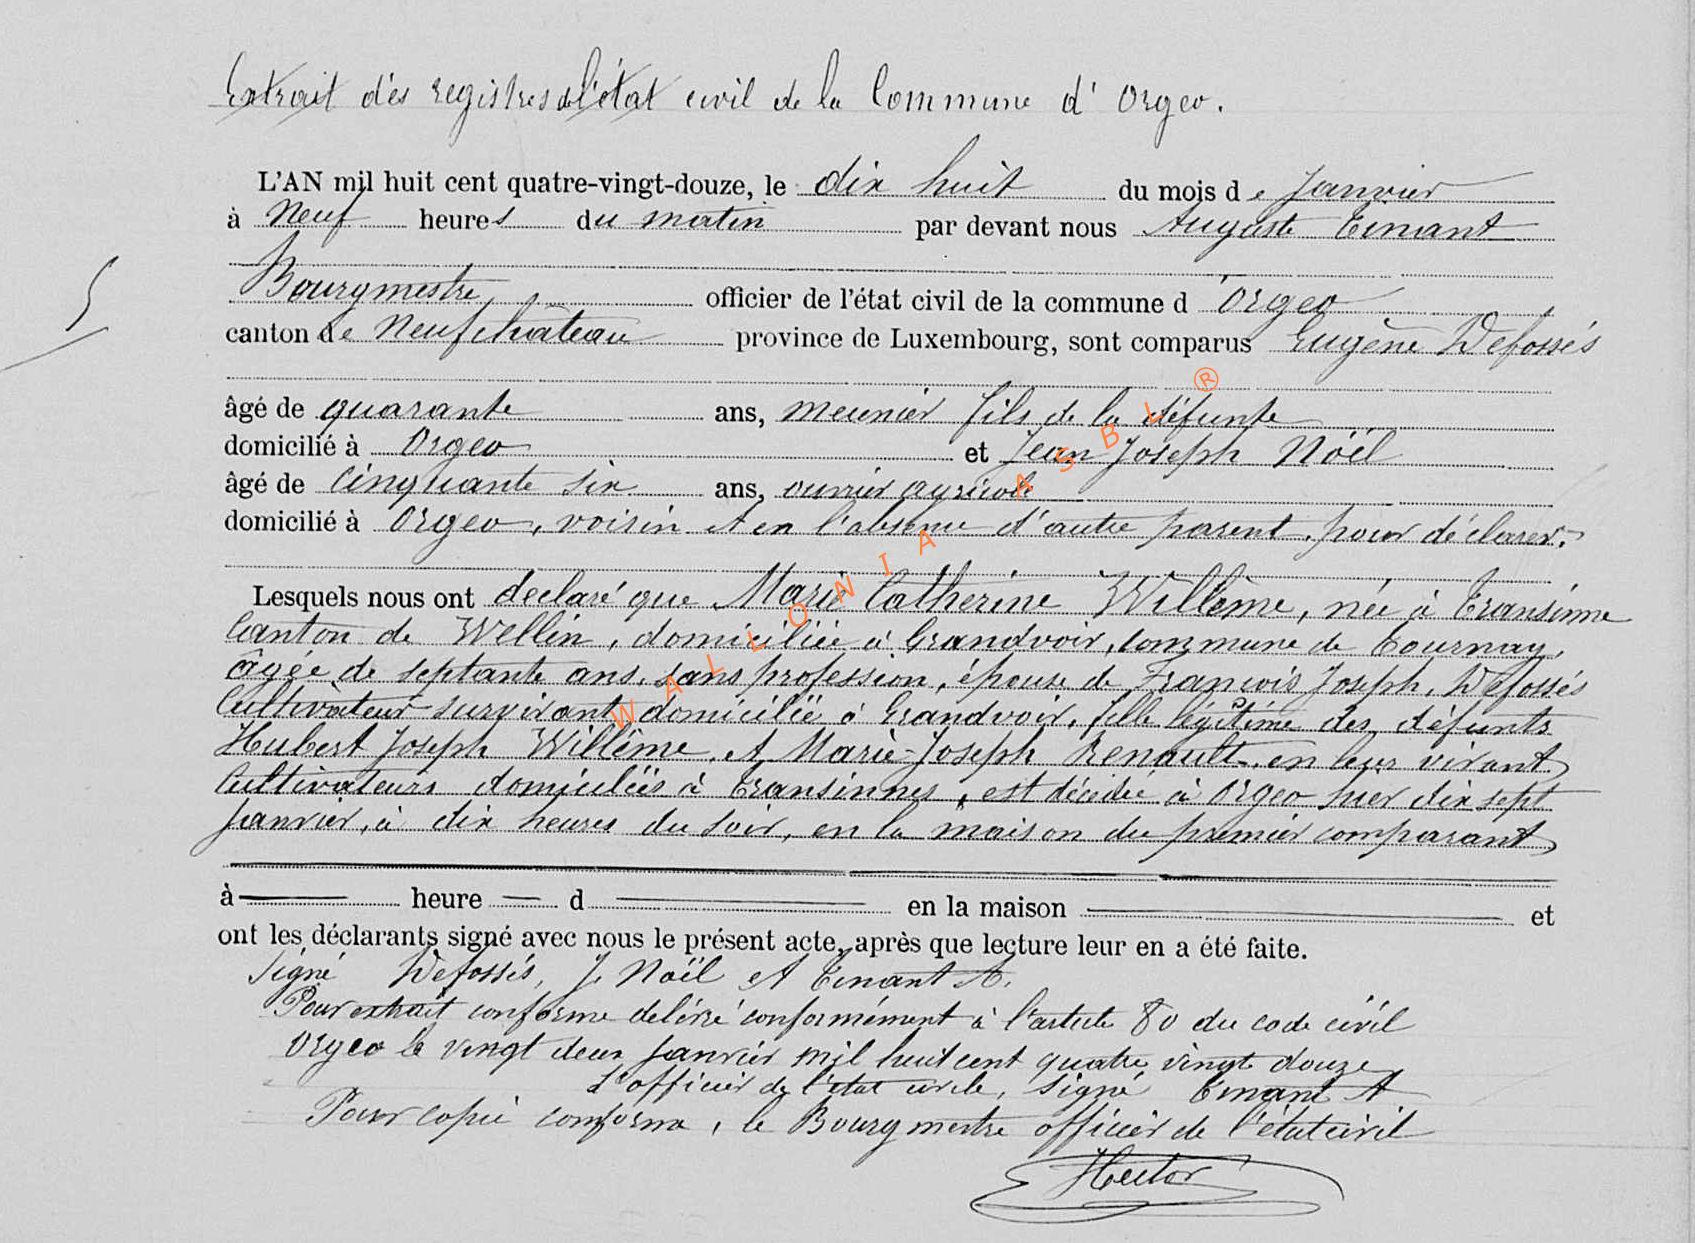 Extrait des registres de l'état civil de la Commune d' Orgeo.
L'AN mil huit cent quatre-vingt-douze, le dix huit du mois de Janvier
à Neuf heures du matin par devant nous Auguste Tinant
Bourgmestre, officier de l'état civil de la commune d Orgeo
5
canton de Neufchâteau province de Luxembourg, sont comparus Eugène Defossés
âgé de quarante ans, meunier fils de la défunte
domicilié à Orgeo et Jean Joseph Nöél
âgé de Cinquante six ans, ouvrier agricole
domicilié à Orgeo, voisin et en l'absence d'autre parent, pour déclarer.
Lesquels nous ont declaré que Marie Catherine Willême, née à Transinne
Canton de Wellin, domiciliée à Grandvoir, commune de Tournay,
âgée de septante ans, sans profession, épouse de François Joseph, Defossés
Cultivateur survivant, domicilié à Grandvoir, fille légitime des défunts
Hubert Joseph Willême, et Marie-Joseph Renault, en leur vivant
Cultivateurs domiciliés à Transinnes, est décédée à Orgeo hier dix sept
Janvier, à dix heures du soir, en la maison du premier comparant
à heure d en la maison et
ont les déclarants signé avec nous le présent acte, après que lecture leur en a été faite.
Signé Defossés, J. Noël et Tinant A.
Pour extrait conforme délivré conformément à l'article 80 du code civil
Orgeo le vingt deux Janvier mil huit cent quatre vingt douze
L'officier de l'état civile, Signé Tinant A
Pour copie conforme, le Bourgmestre officier de l'état civil
Hector
WALLONIA ASBL ®